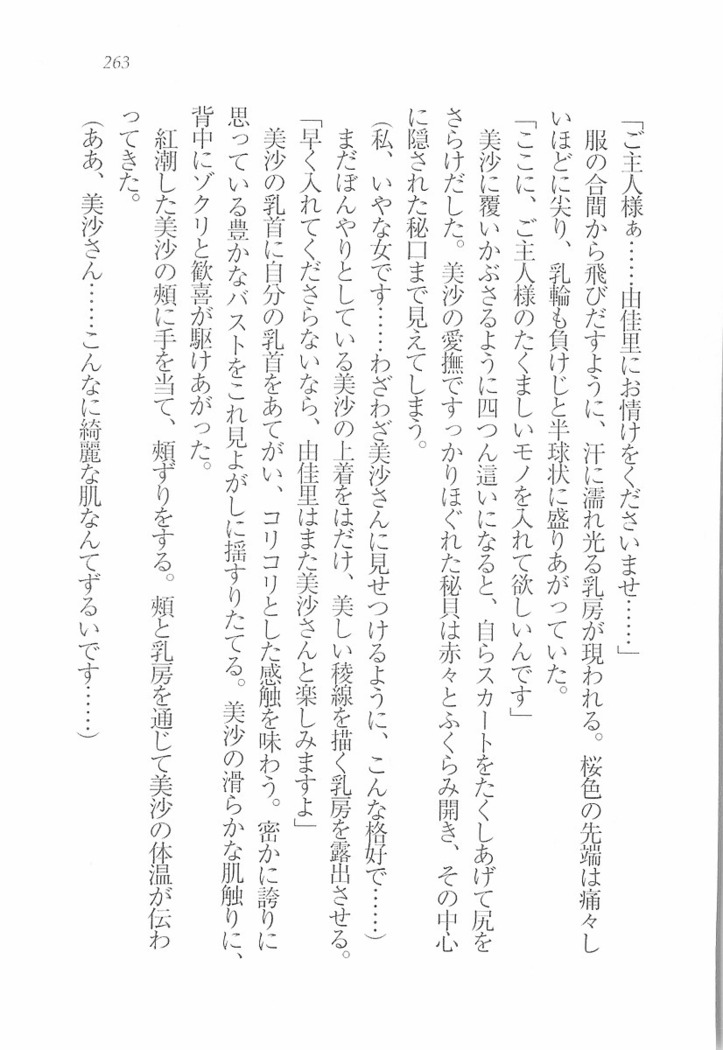 263
「ご主人様ぁ……由佳里にお情けをくださいませ……」
服の合間から飛びだすように、汗に濡れ光る乳房が現われる。桜色の先端は痛々し
いほどに尖り、乳輪も負けじと半球状に盛りあがっていた。
「ここに、ご主人様のたくましいモノを入れて欲しいんです」
美沙に覆いかぶさるように四つん這いになると、自らスカートをたくしあげて尻を
さらけだした。美沙の愛撫ですっかりほぐれた秘貝は赤々とふくらみ開き、その中心
に隠された秘口まで見えてしまう。
（私、いやな女です……わざわざ美沙さんに見せつけるように、こんな格好で……）
まだぼんやりとしている美沙の上着をはだけ、美しい稜線を描く乳房を露出させる。
「早く入れてくださらないなら、由佳里はまた美沙さんと楽しみますよ」
美沙の乳首に自分の乳首をあてがい、コリコリとした感触を味わう。密かに誇りに
思っている豊かなバストをこれ見よがしに揺すりたてる。美沙の滑らかな肌触りに、
背中にゾクリと歓喜が駆けあがった。
紅潮した美沙の頰に手を当て、頰ずりをする。頰と乳房を通じて美沙の体温が伝わ
ってきた。
（ああ、美沙さん……こんなに綺麗な肌なんてずるいです……）